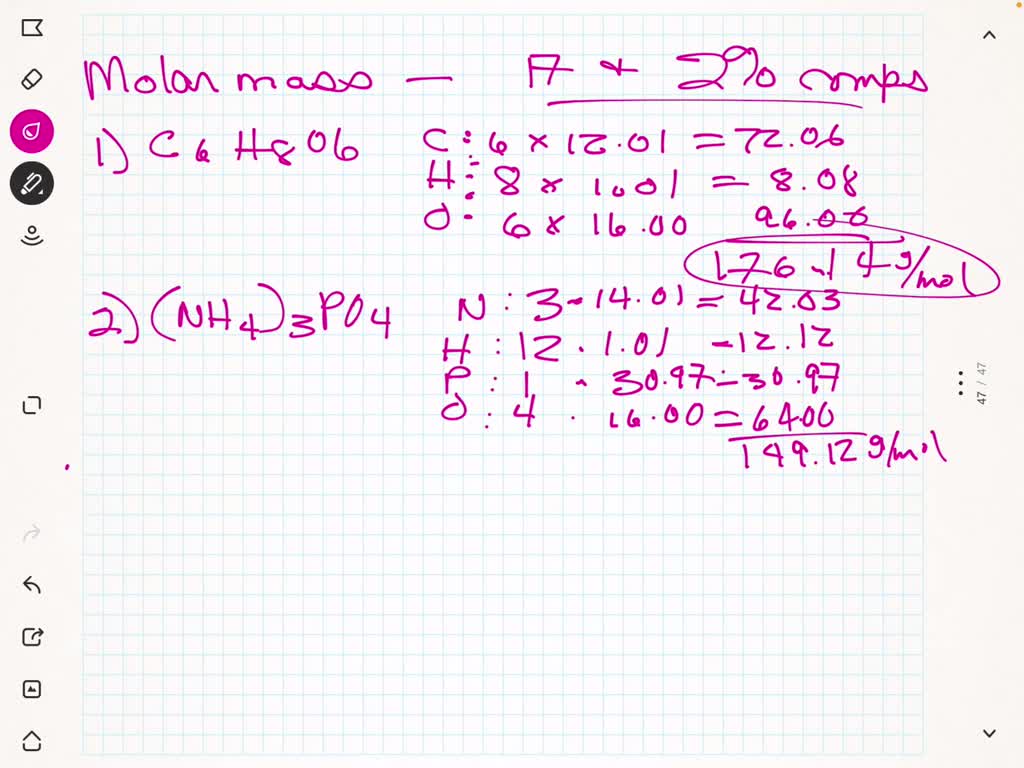 Molar mass — 7 + 2% comps
1) C6H8O6 C: 6 × 12.01 = 72.06
H: 8 × 1.01 = 8.08
O: 6 × 16.00 96.00
176.14 g/mol
2) (NH4)3PO4 N: 3 · 14.01 = 42.03
H: 12 · 1.01 = 12.12
P: 1 · 30.97 = 30.97
O: 4 · 16.00 = 64.00
149.12 g/mol
47 / 47